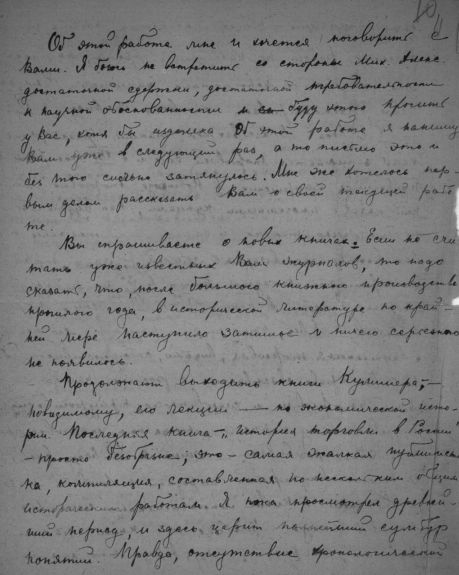 10
Об этой работе мне и хочется поговорить с
Вами. Я боюсь не встретить со стороны Мих. Алекс.
достаточной сдержки, достаточной требовательности
к научной обоснованности и буду этого просить
у Вас, хотя бы издалека. Об этой работе я напишу
Вам уже в следующий раз, а то письмо это и
без того сильно затянулось. Мне же хотелось пер-
вым делом рассказать Вам о своей текущей рабо-
те.
Вы спрашиваете о новых книгах. Если не счи-
тать уже известных Вам журналов, то надо
сказать, что, после большого книжного производства
прошлого года, в исторической литературе по край-
ней мере наступило затишье и ничего серьезного
не появилось.
Продолжают выходить книги Кулишера,-
повидимому, его лекции — по экономической исто-
рии. Последняя книга - "История торговли в России"
- просто безобразие; это - самая жалкая публицисти-
ка, компиляция, составленная по нескольким общим
историческим работам. Я пока просмотрел древней-
ший период, и здесь царит полнейший сумбур
понятий. Правда, отсутствие хронологической